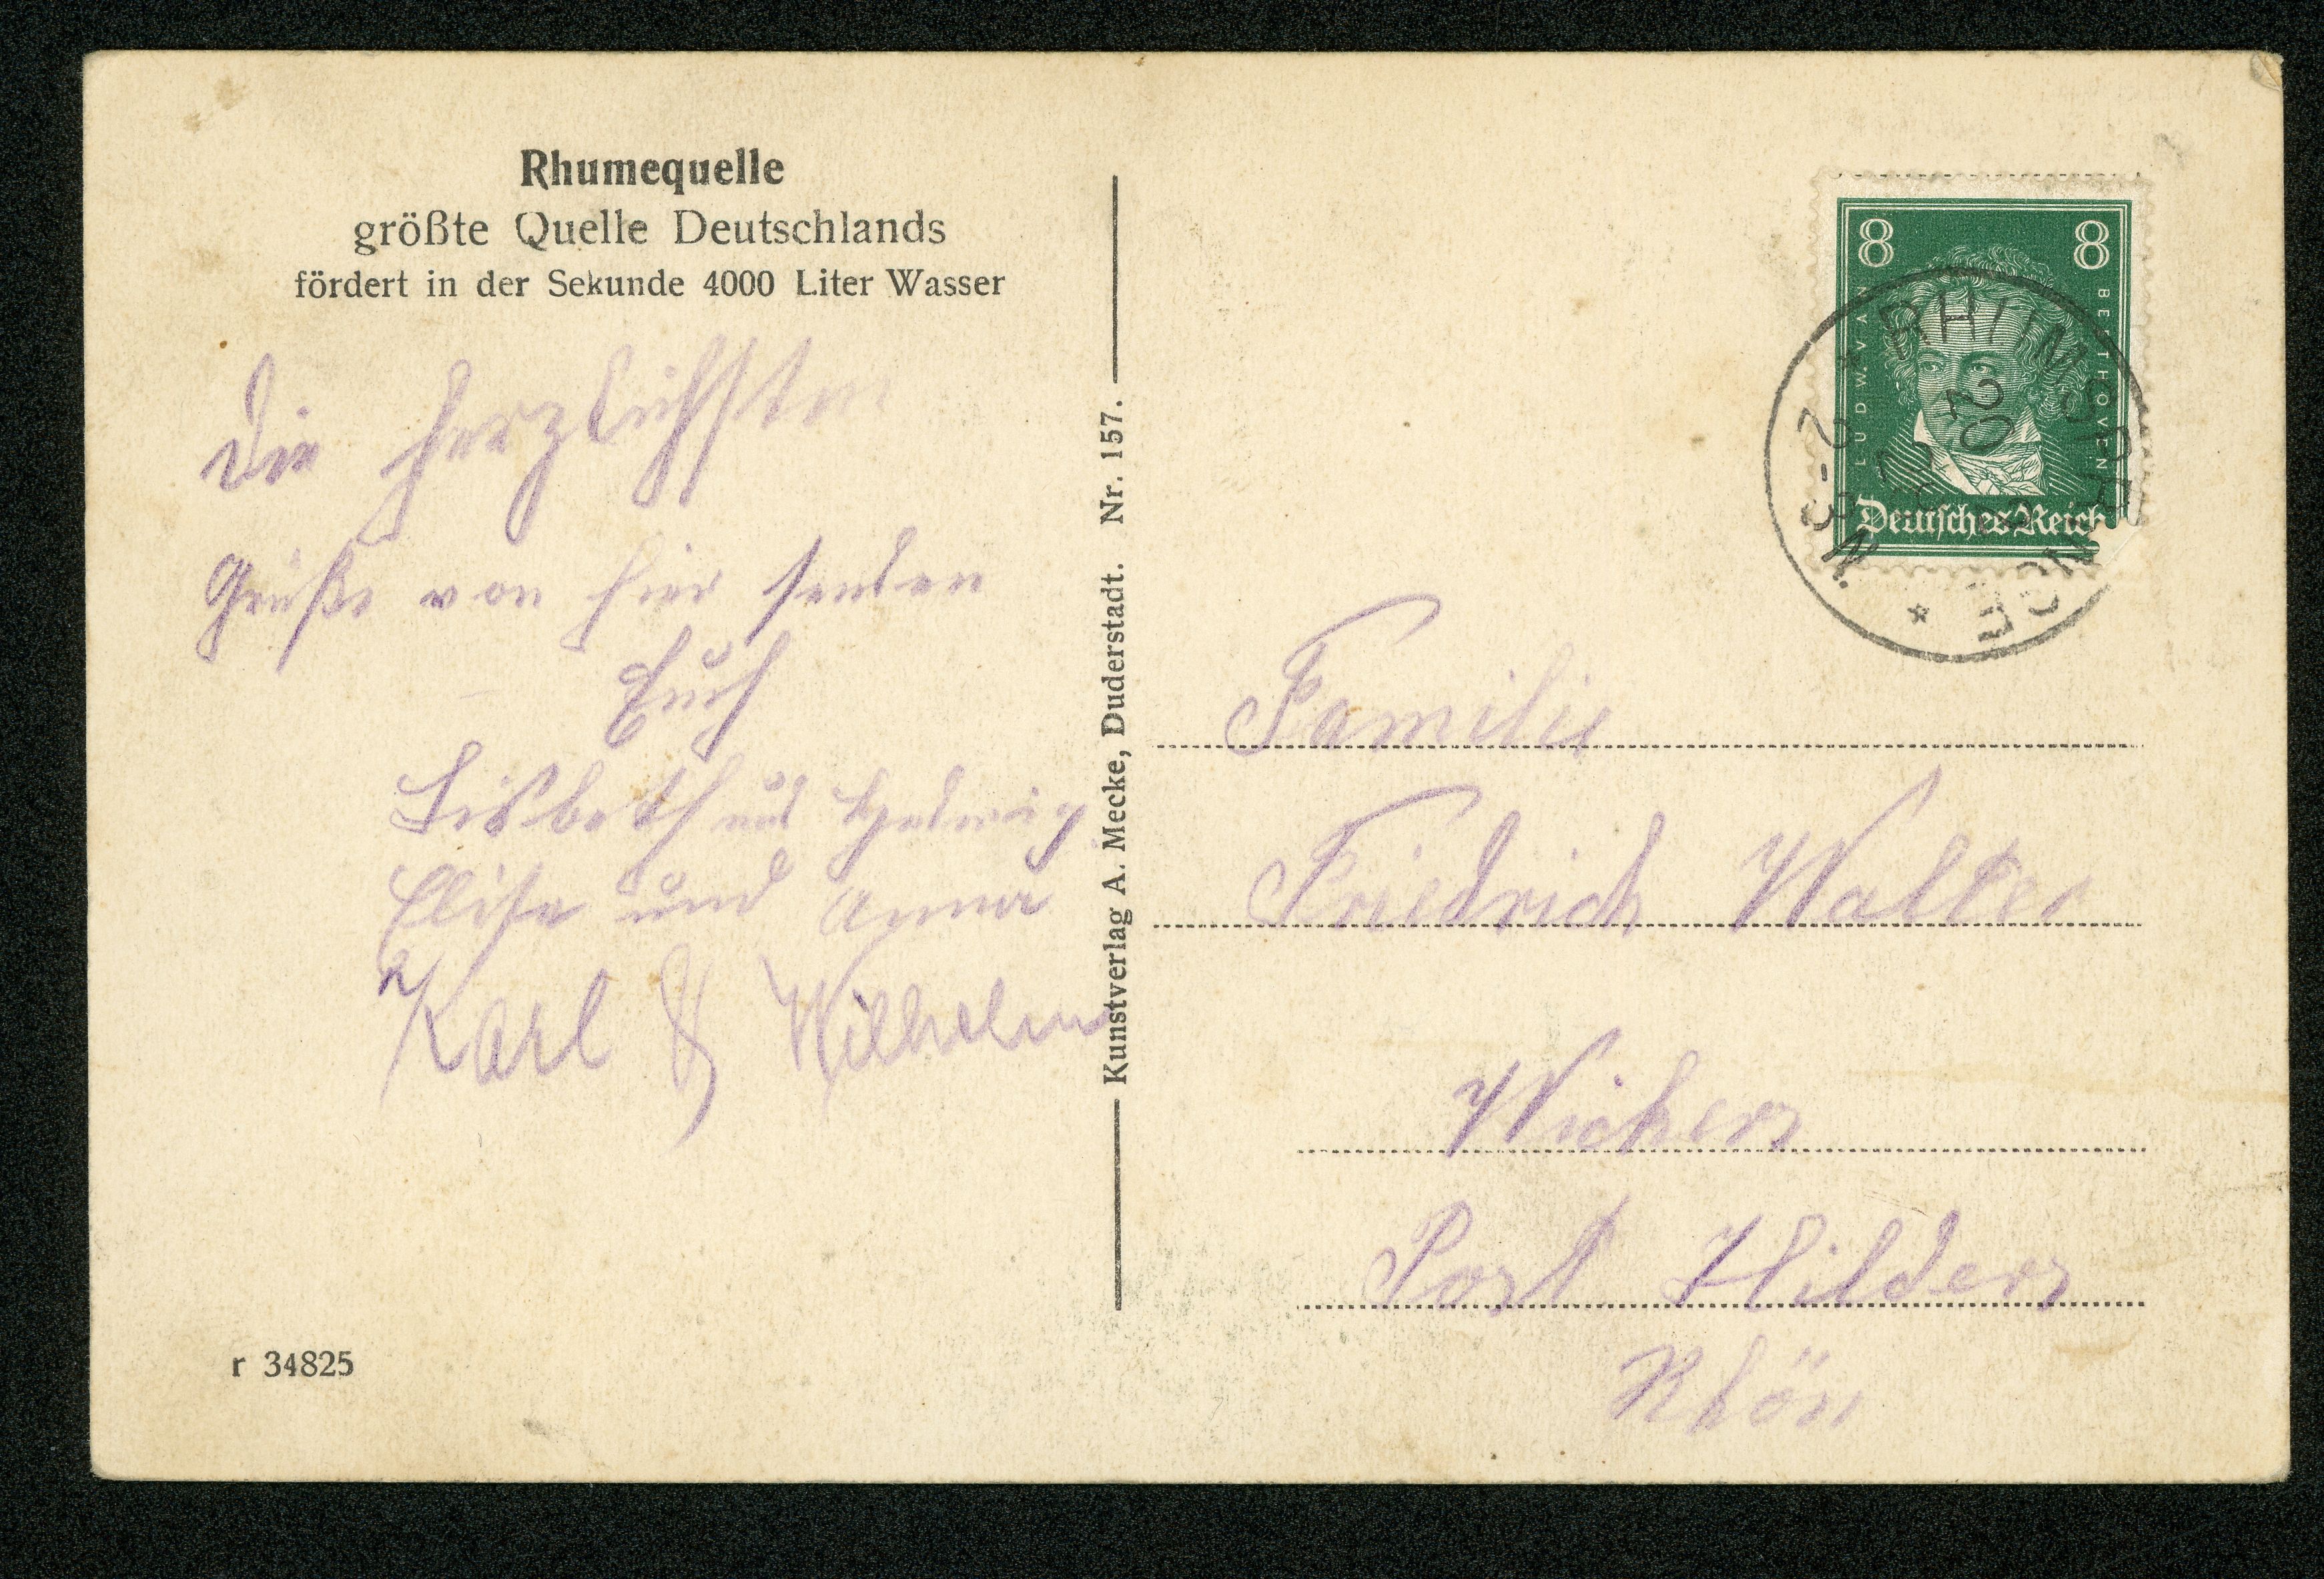 Rhumequelle
größte Quelle Deutschlands
fördert in der Sekunde 4000 Liter Wasser
Die herzlichsten
Grüße von hier senden
Euch
Lisbeth und Hedwig
Elise und Anna
Karl & Wilhelm
r 34825
Kunstverlag A. Mecke, Duderstadt. Nr. 157.
8 8
LUDW. VAN BEETHOVEN
Deutsches Reich
RHUMSPRINGE
20
2-3 N.
Familie
Friedrich Walter
Wickers
Post Hilders
Rhön